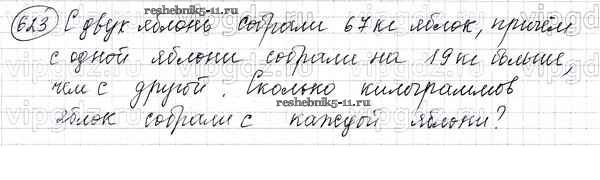 623 С двух яблонь собрали 67 кг яблок, причём
с одной яблони собрали на 19 кг больше,
чем с другой. Сколько килограммов
reshebnik5-11.ru
яблок собрали с каждой яблони?
reshebnik5-11.ru